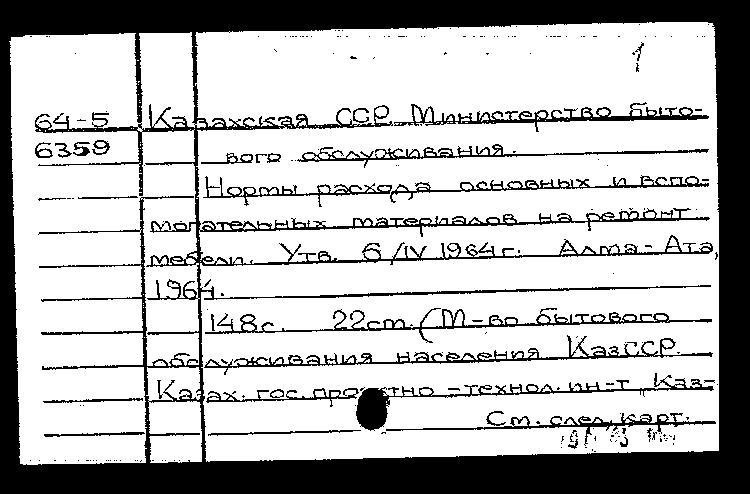 1
64-5 Казахская ССР. Министерство быто-
6359 вого обслуживания.
Нормы расхода основных и вспо-
могательных материалов на ремонт
мебели. Утв. 6/IV 1964 г. Алма-Ата,
1964.
148 с. 22 см. (М-во бытового
обслуживания населения КазССР.
Казах. гос. проектно-технол. ин-т „Каз-
См. след. карт.